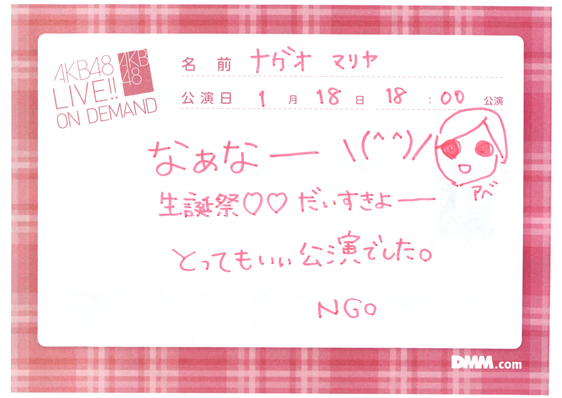 AKB48
LIVE!!
ON DEMAND
AKB
48
名前 ナガオ マリヤ
公演日 1月18日 18:00 公演
なぁなー \(^^)/
アベ
生誕祭♡♡だいすきよー
とってもいぃ公演でした。
NGO
DMM.com